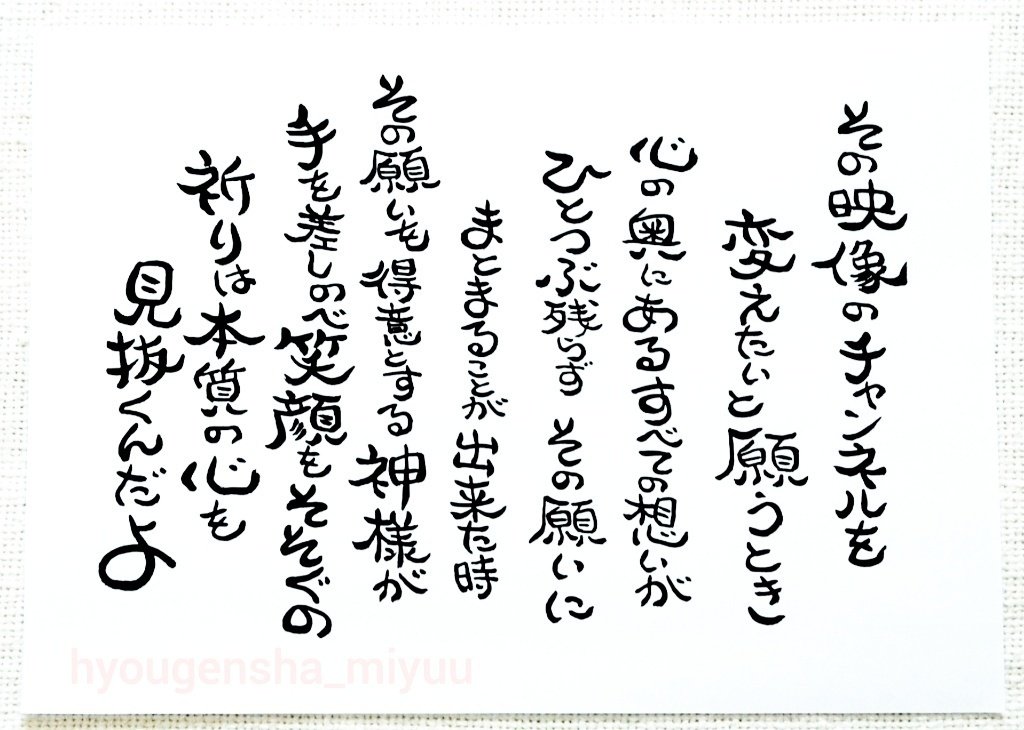 その映像のチャンネルを
変えたいと願うとき
心の奥にあるすべての想いが
ひとつぶ残らず その願いに
まとまることが出来た時
その願いを得意とする神様が
手を差しのべ笑顔をそそぐの
祈りは本質の心を
見抜くんだよ
hyougensha_miyuu